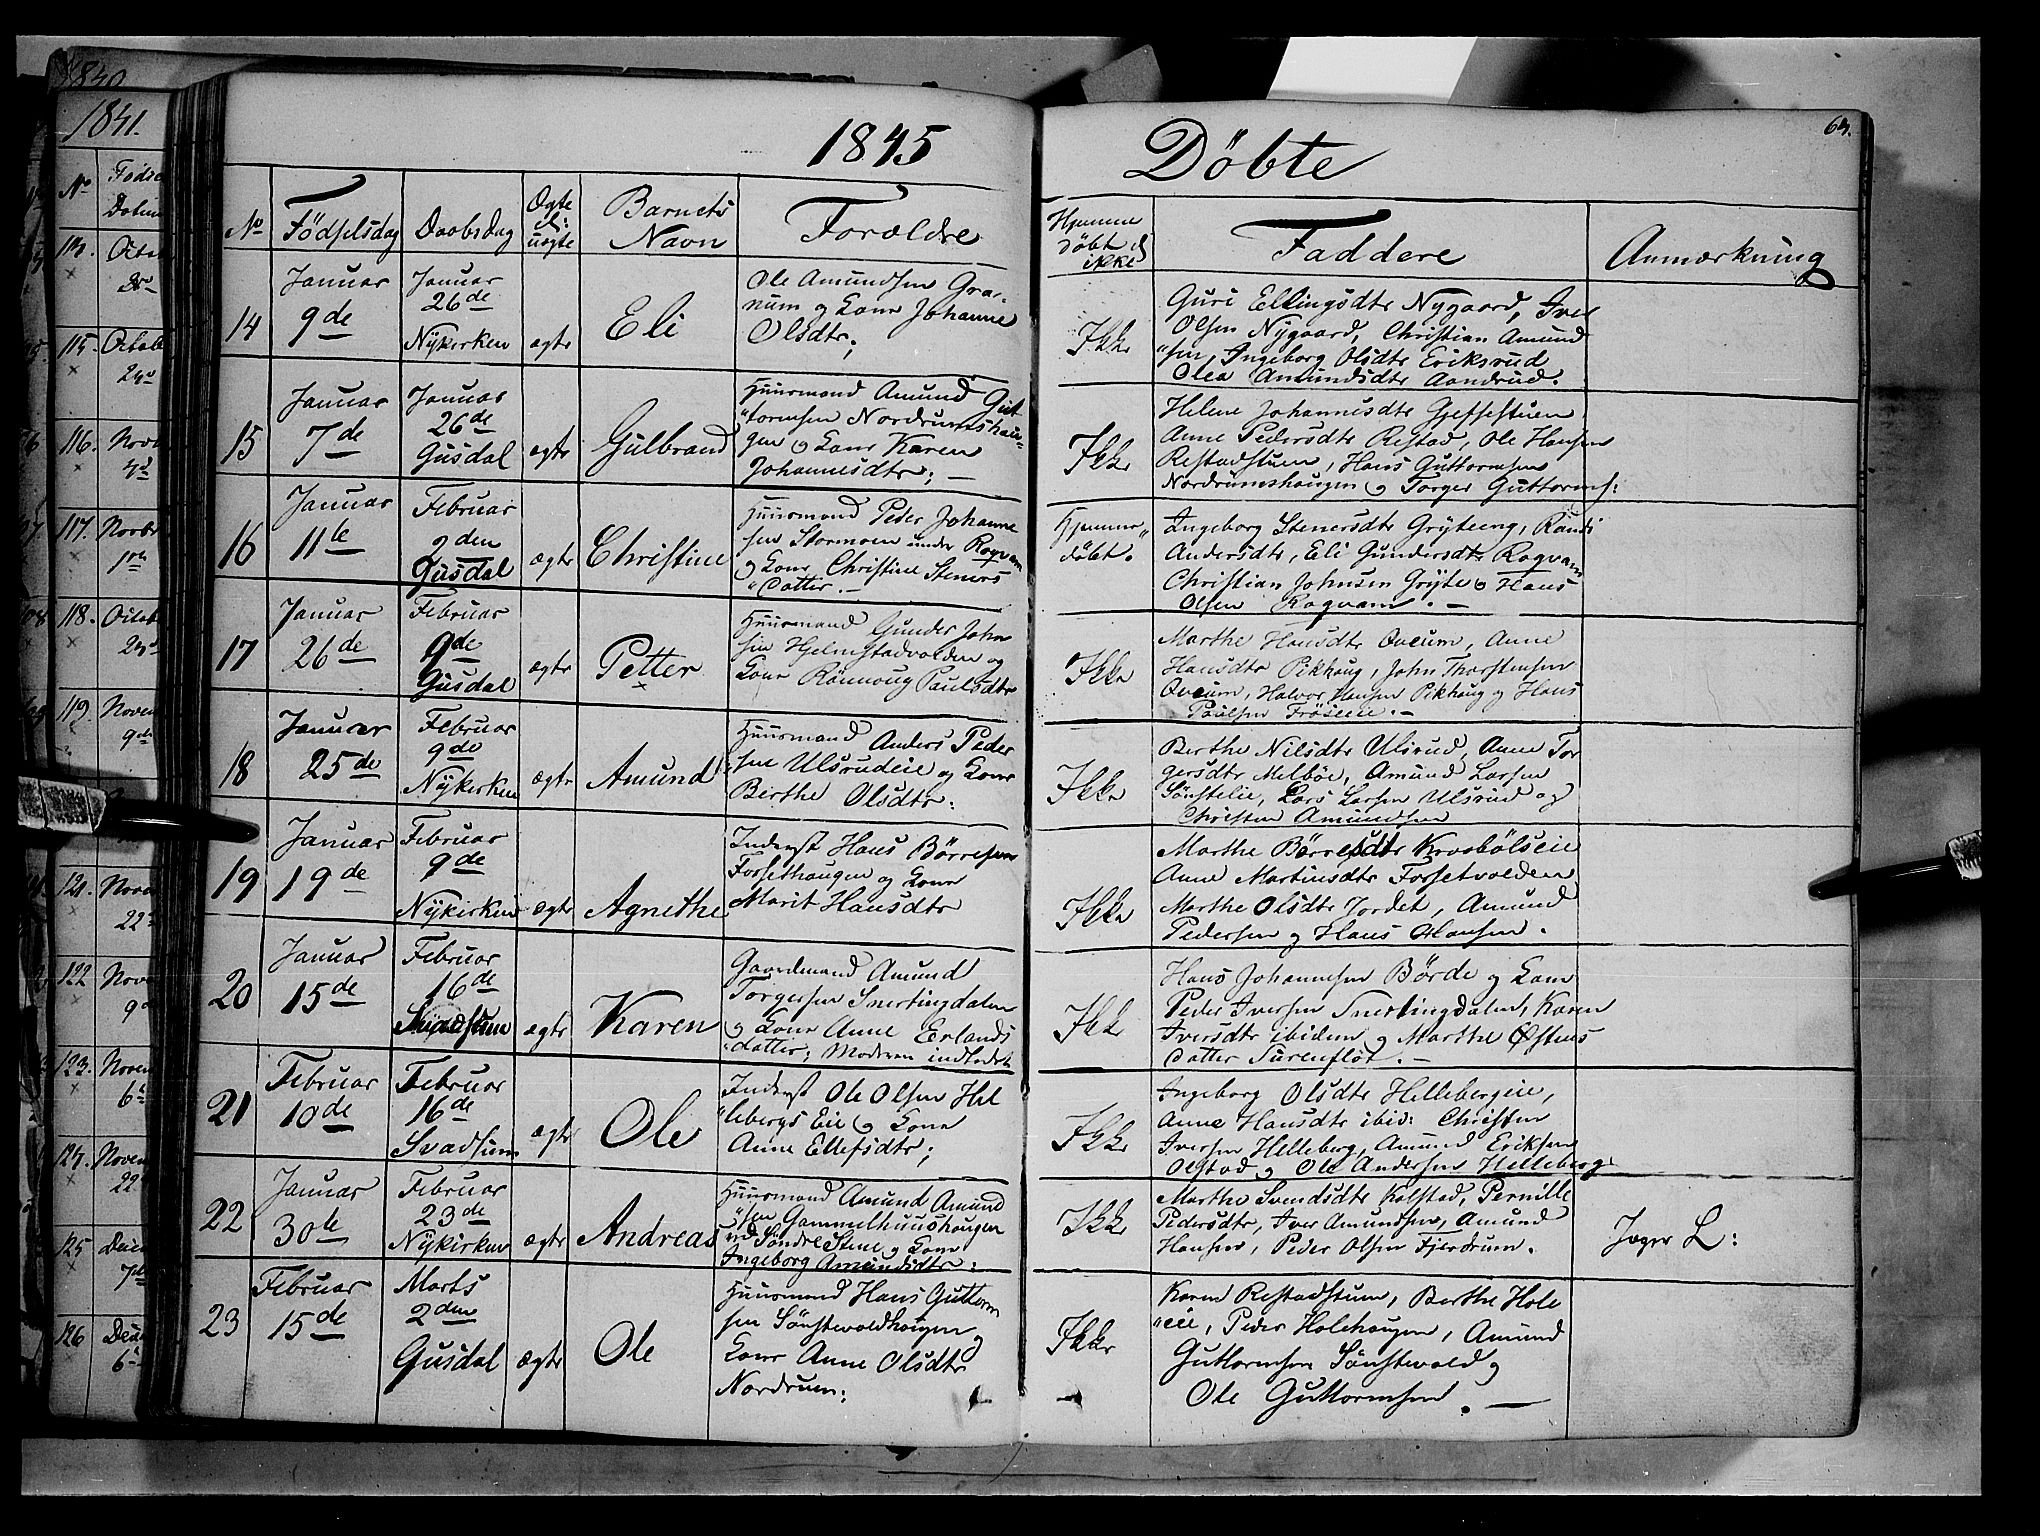 1840
1841.
1845
Döbte
No
Födselsdag
Daabsdag
Ægte
el:
uægte
Barnets
Navn
Forældre
Hjemme
döbt el
ikke
Faddere
Anmærkning
14
Januar
9de
Januar
26de
Nykirken
ægte
Eli
Ole Amundsen Gra-
num og Kone Johanne
Olsdtr;
Ikke
Guri Ellingsdtr Nygaard, Iver
Olsen Nygaard, Christian Amund
"sen, Ingeborg Olsdtr Eriksrud
Olea Amundsdtr Aandrud.
15
Januar
7de
Januar
26de
Gusdal
ægte
Gulbrand
Huusmand Amund Gut
"tormsen Nordrumshau-
gen og Kone Karen
Johannesdtr; —
Ikke
Helene Johannesdtr Gjeffestuen
Anne Pedersdtr Restad, Ole Hansen
Restadstuen, Hans Guttormsen
Nordrumshaugen og Torger Guttorms:
16
Januar
11te
Februar
2den
Gusdal
ægte
Christine
Huusmand Peder Johanne
sen Stormoen under Rogvam
og Kone Christine Steners
"datter. —
Hjemme"
döbt.
Ingeborg Stenersdtr Gryteeng, Randi
Andersdtr, Eli Gundersdtr Rogvam
Christian Johnsen Gryte og Hans
Olsen Rogvam. —
17
Januar
26de
Februar
9de
Gusdal
ægte
Petter
Huusmand Gunder John
sen Hjelmstadvolden og
Kone Rönnoug Paulsdtr
Ikke
Marthe Hansdtr Qveum, Anne
Hansdtr Pikhaug, John Thorstensen
Qveum, Halvor Hansen Pikhaug og Hans
Paulsen Fröseie. —
18
Januar
25de
Februar
9de
Nykirken
ægte
Amund
Huusmand Anders Peder
"sen Ulsrudeie og Kone
Berthe Olsdtr:
Ikke
Berthe Nilsdtr Ulsrud, Anne Tor
gersdtr Melböe, Amund Larsen
Sönstelie, Lars Larsen Ulsrud og
Christen Amundsen
19
Januar
19de
Februar
9de
Nykirken
ægte
Agnethe
Inderst Hans Börresen
Forsethaugen og Kone
Marit Hansdtr
Ikke
Marthe Börresdtr Krosbölseie
Anne Martinsdtr Forsetvolden
Marthe Olsdtr Jordet, Amund
Pedersen og Hans Hansen.
20
Januar
15de
Februar
16de
Svadsum
ægte
Karen
Gaardmand Amund
Torgersen Snertingdalen
og Kone Anne Erlands
"datter; Moderen indledet
Ikke
Hans Johannesen Börde og Kone
Peder Iversen Snertingdalen, Karen
Iversdtr ibidem og Marthe Östens
datter Surenflöt. —
21
Februar
10de
Februar
16de
Svadsum
ægte
Ole
Inderst Ole Olsen Hel
"lebergs Eie og Kone
Anne Ellefsdtr;
Ikke
Ingeborg Olsdtr Hellebergeie,
Anne Hansdtr ibid: Christen
Iversen Helleberg, Amund Eriksen
Olstad og Ole Andersen Helleberg
22
Januar
30te
Februar
23de
Nykirken
ægte
Andreas
Huusmand Amund Amund
"sen Gammelhuushaugen
und Söndre Stene og Kone
Ingeborg Amundsdtr:
Ikke
Marthe Svendsdtr Kolstad, Pernille
Pedersdtr, Iver Amundsen, Amund
Hansen, Peder Olsen Fjerdrum.
Jæger L:
23
Februar
15de
Marts
2den
Gusdal
ægte
Ole
Huusmand Hans Guttorm
sen Sönstevoldhaugen og
Kone Anne Olsdtr
Nordrum;
Ikke
Karen Restadstuen, Berthe Hole
"eie, Peder Holehaugen, Amund
Guttormsen Sönstevold og
Ole Guttormsen. —